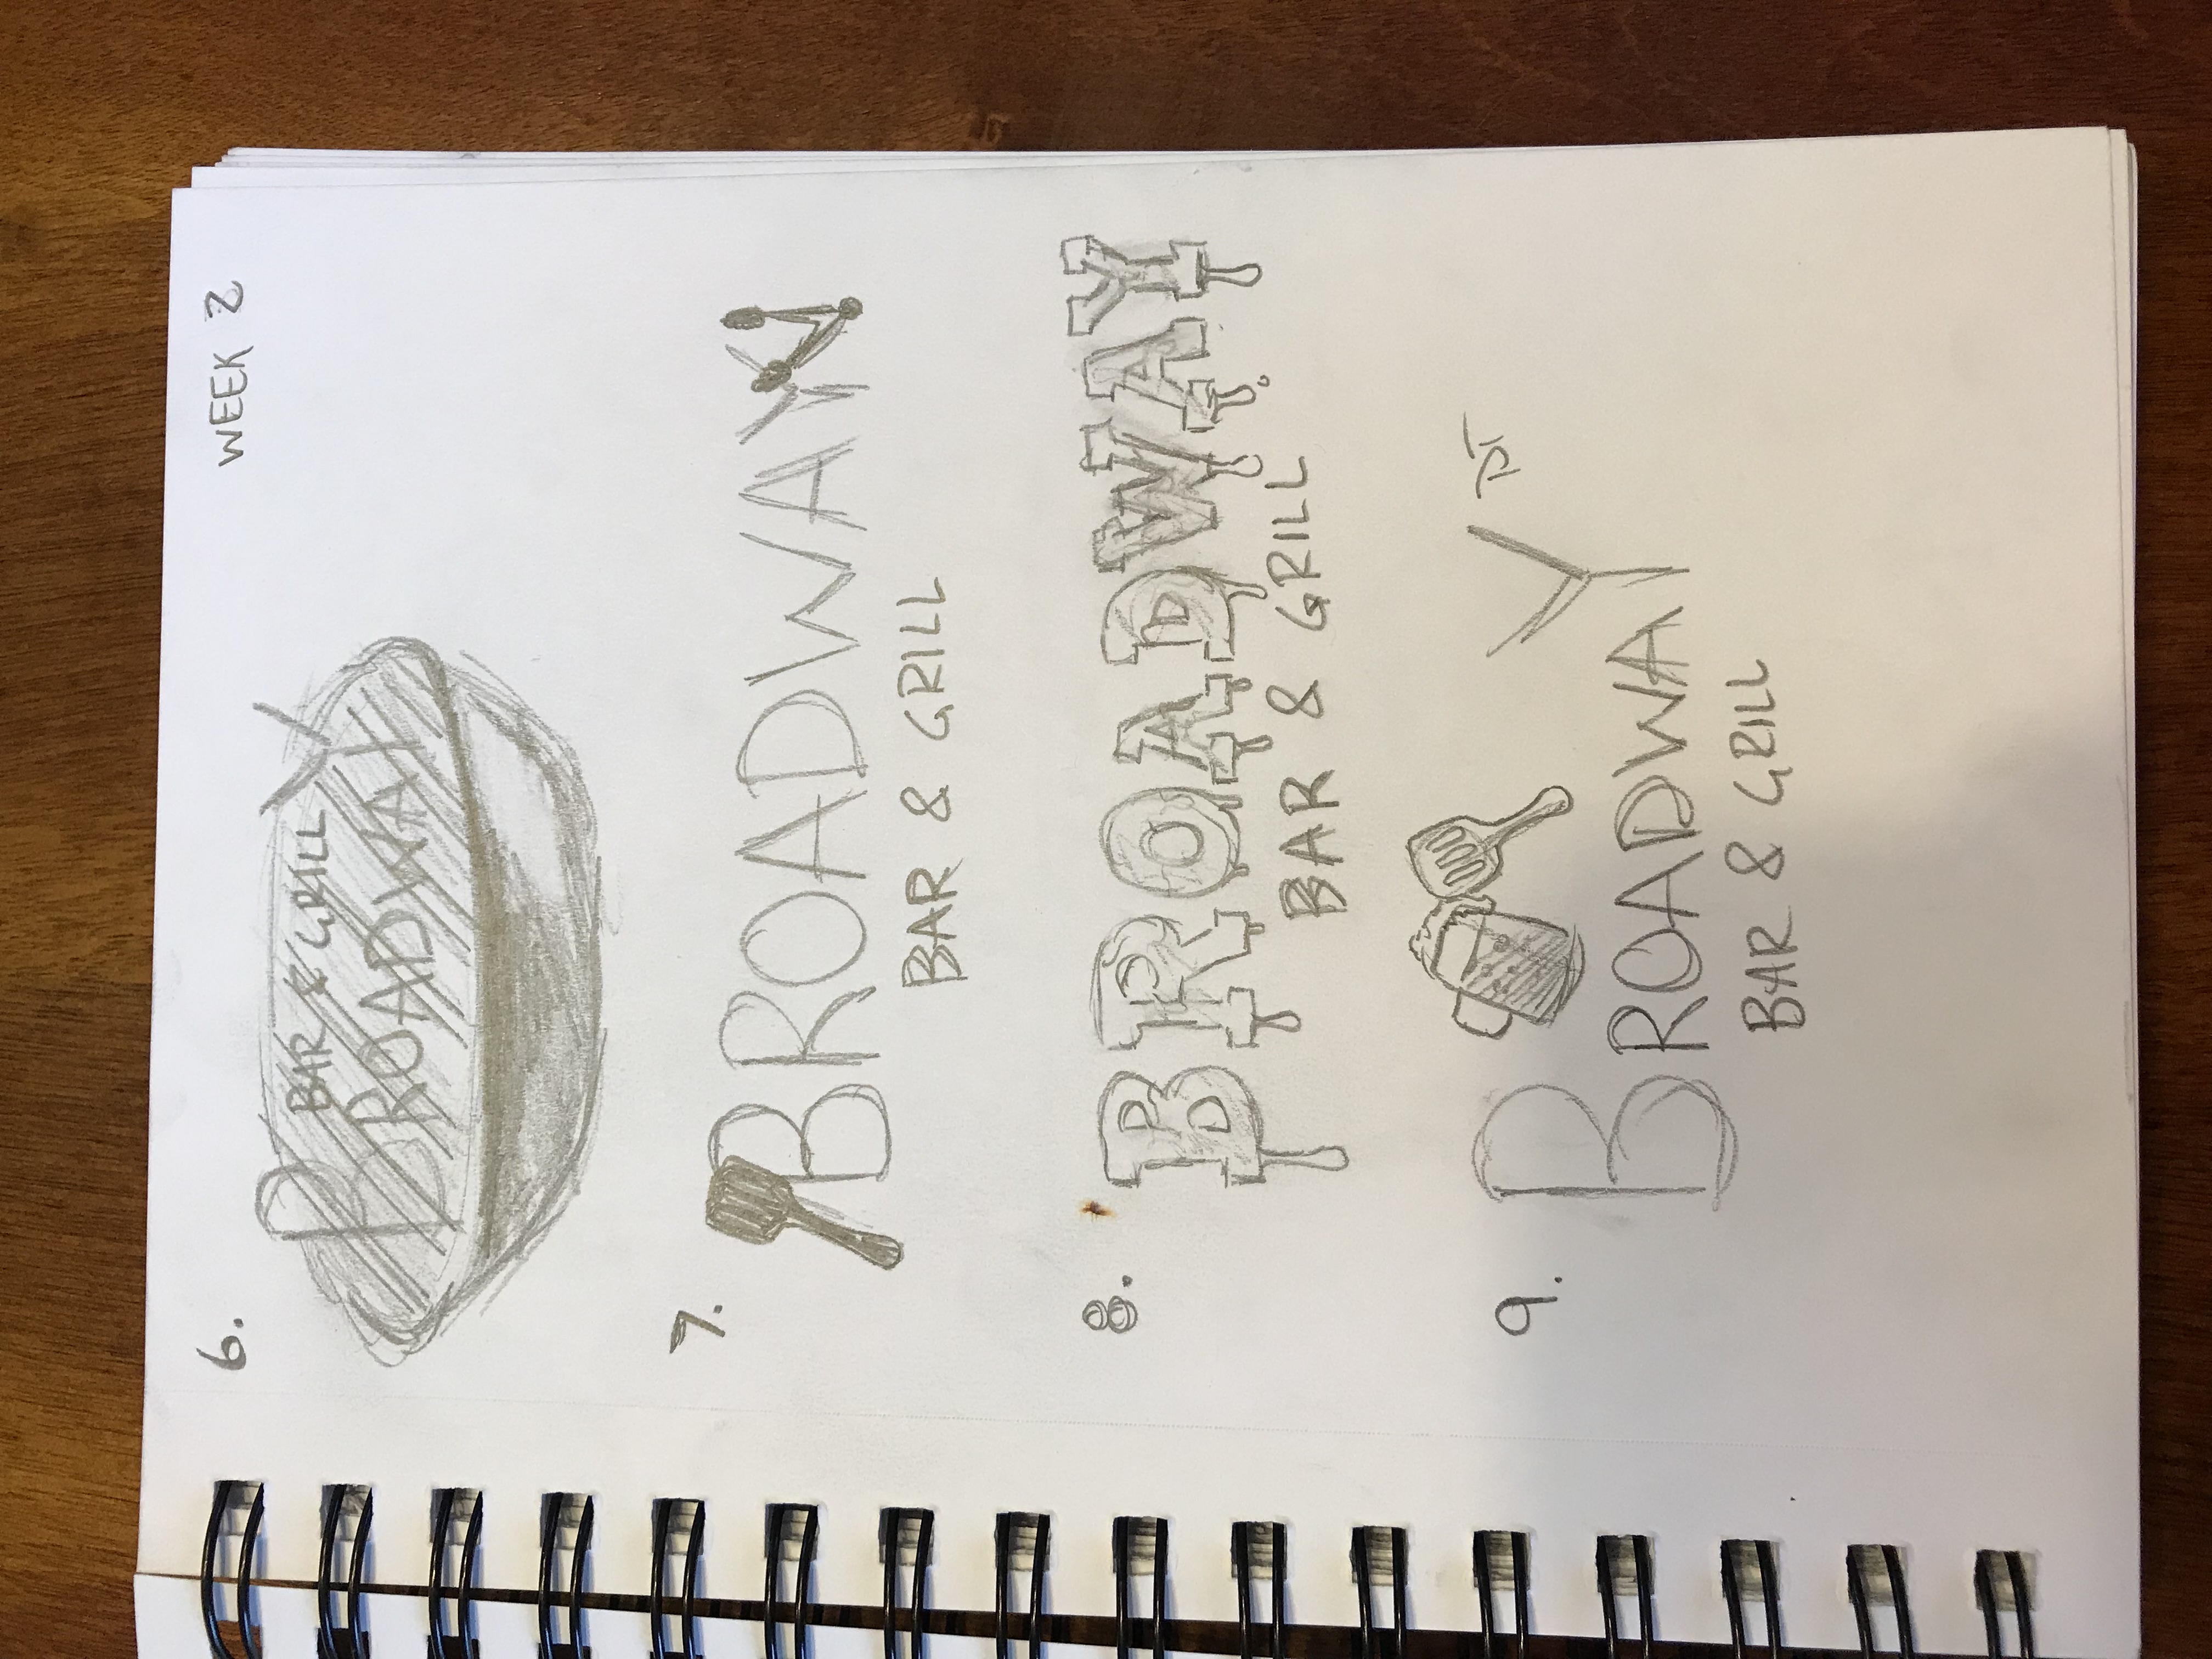 6.
WEEK 2
BAR & GRILL
BROADWAY
7.
BROADWAY
BAR & GRILL
8.
BROADWAY
BAR & GRILL
9.
DT
BROADWAY
BAR & GRILL